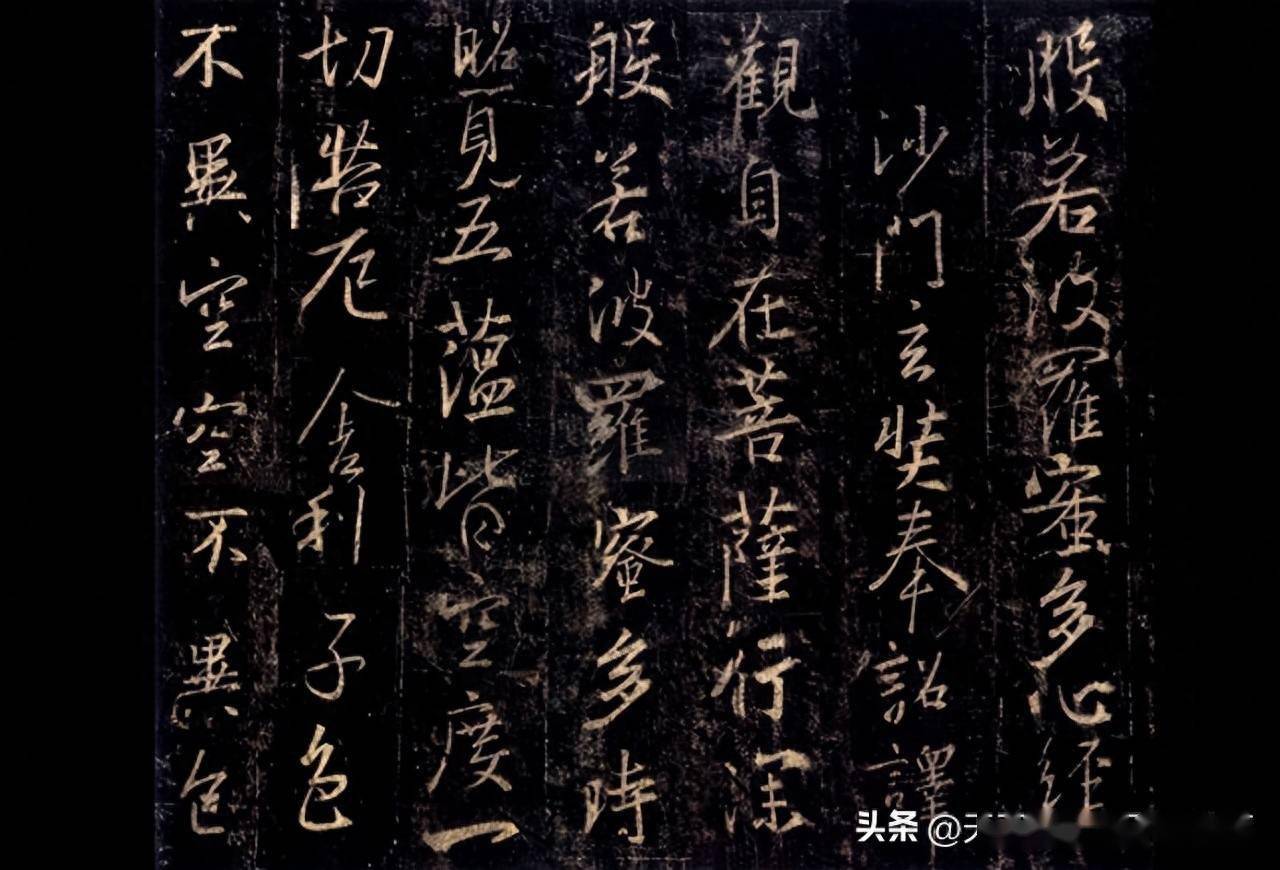 般若波羅蜜多心經
沙門玄奘奉詔譯
觀自在菩薩行深
般若波羅蜜多時
照見五蘊皆空度一
切苦厄舍利子色
不異空空不異色
头条 @天